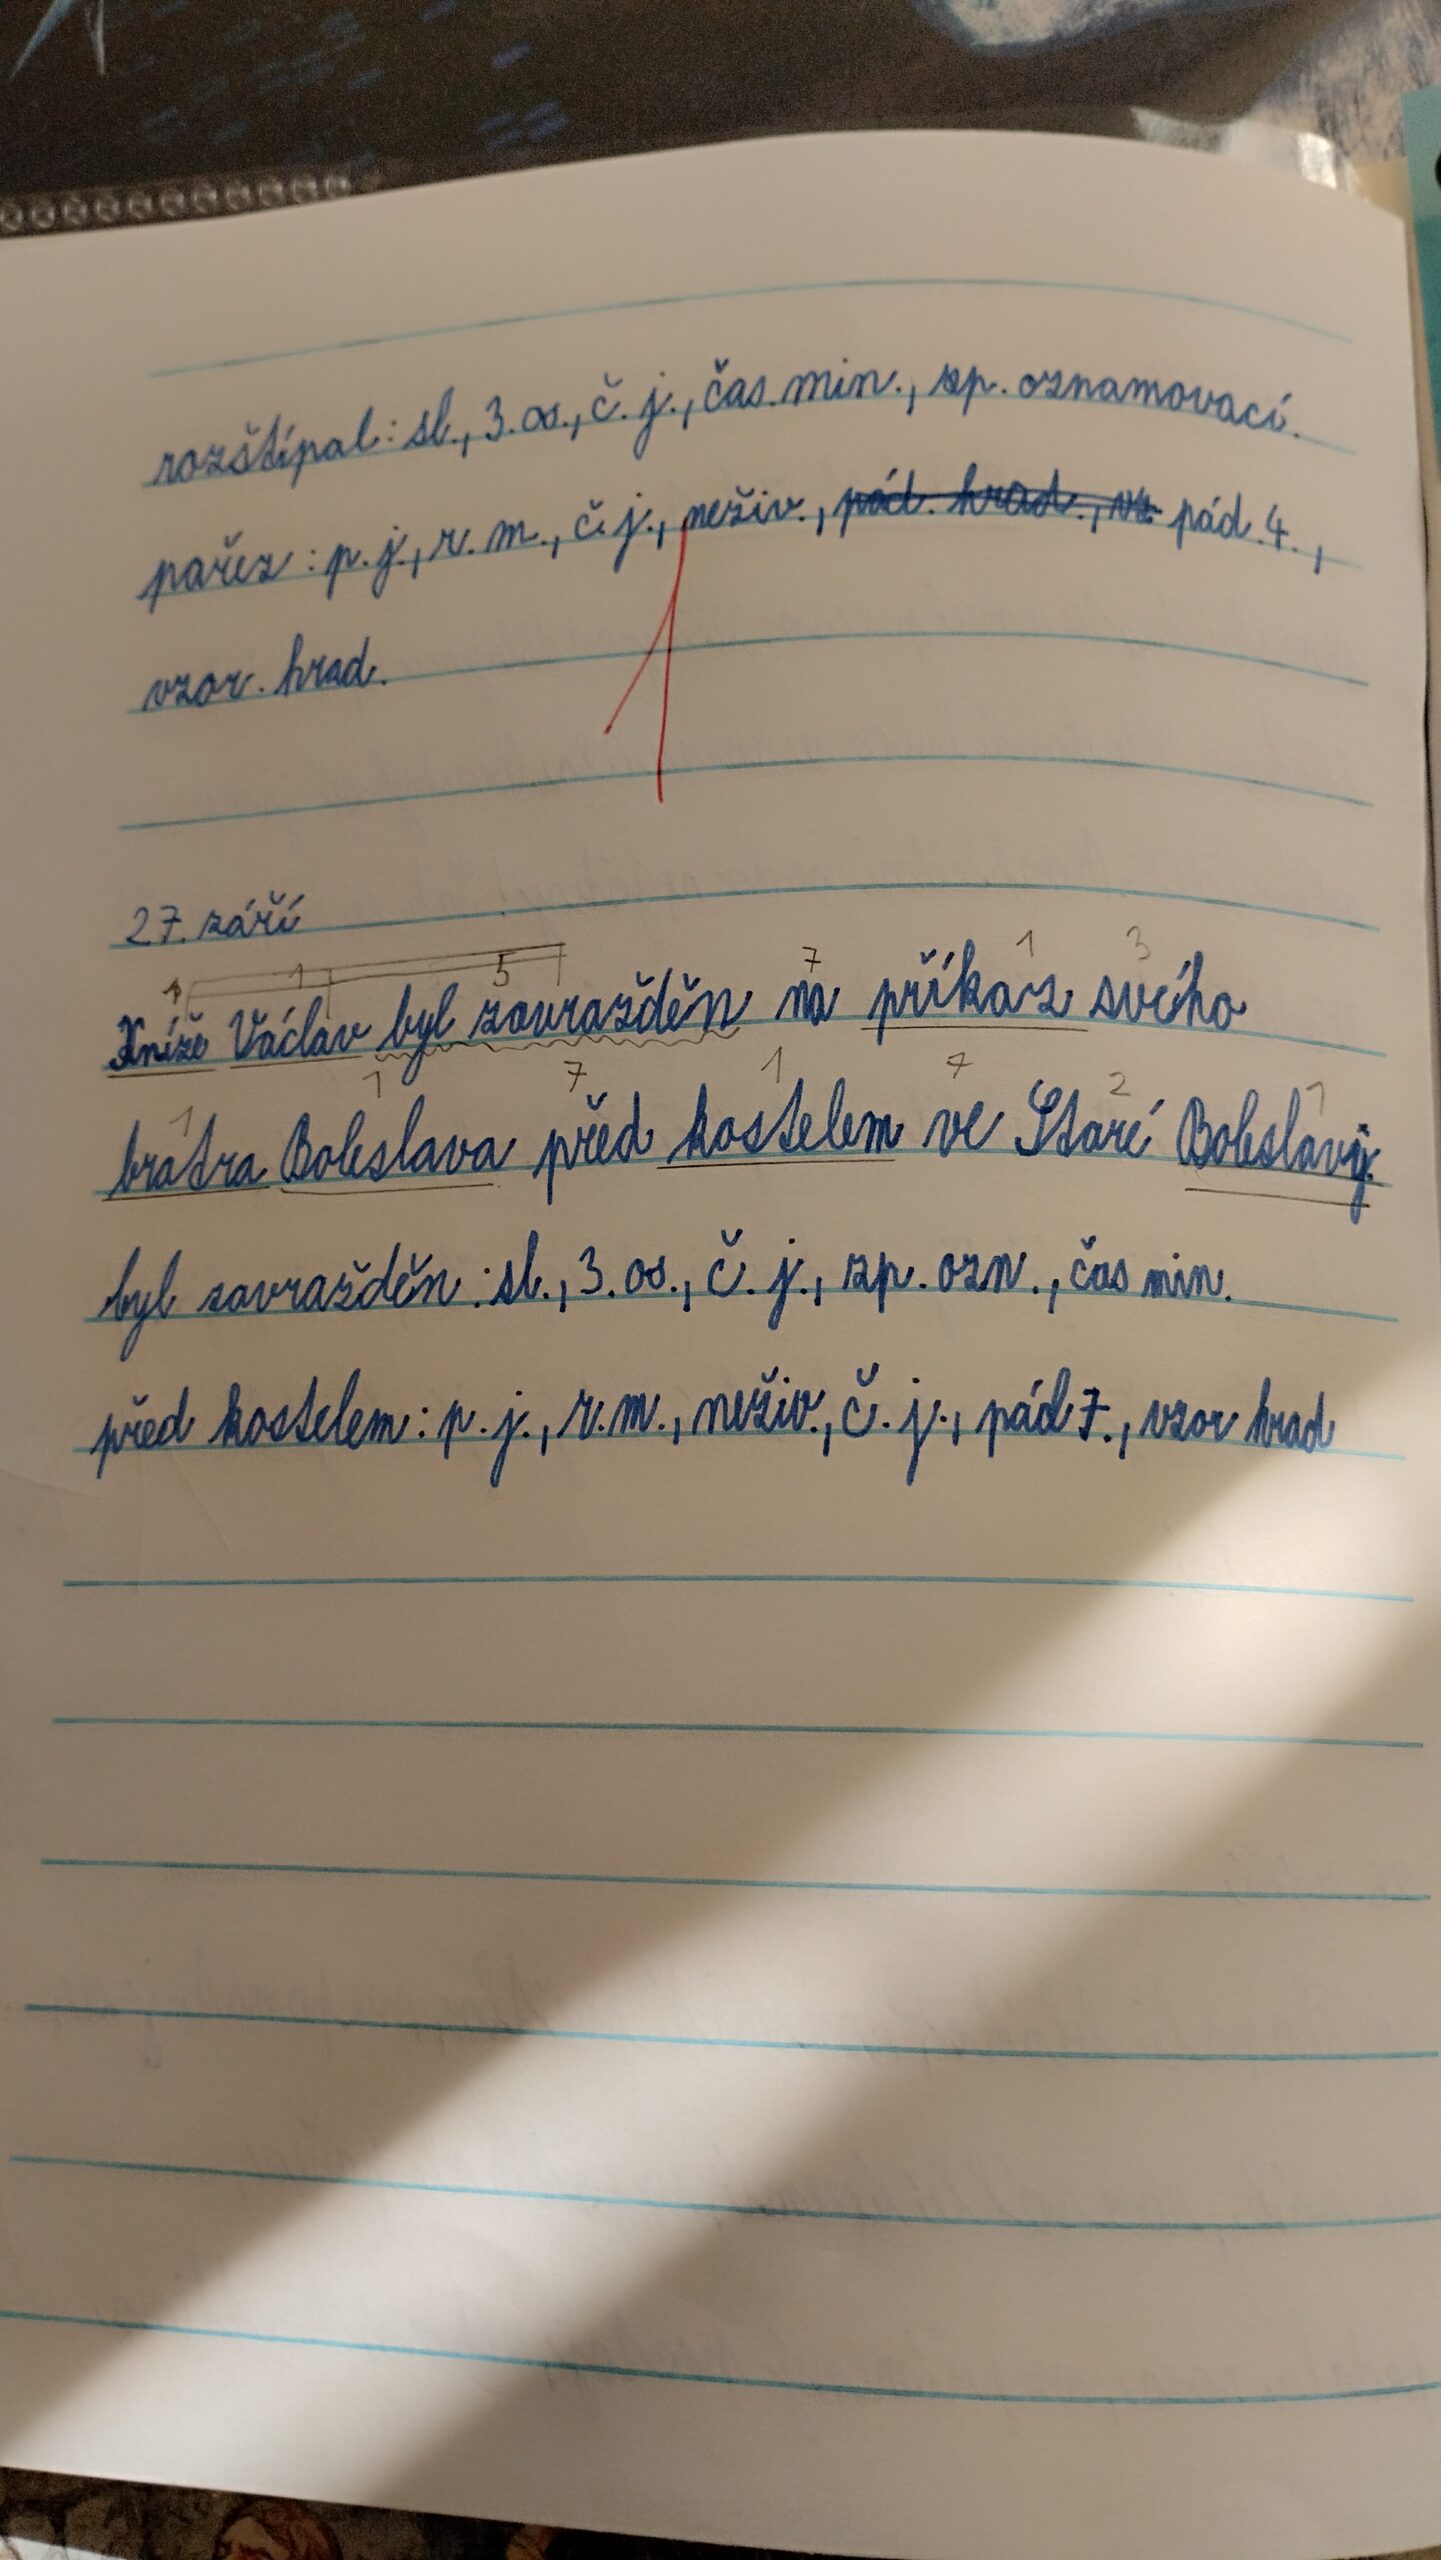 rozštípal: sl., 3. os., č. j., čas. min., zp. oznamovací.
pařez: p. j., r. m., č. j., neživ., pád. hrad., vz. pád. 4.,
vzor. hrad.
1
27. září
1 1 5 7 1 3
Kníže Václav byl zavražděn na příkaz svého
1 1 7 1 7 2 1
bratra Boleslava před kostelem ve Staré Boleslavi.
byl zavražděn: sl., 3. os., č. j., zp. ozn., čas min.
před kostelem: p. j., r. m., neživ., č. j., pád 7., vzor hrad